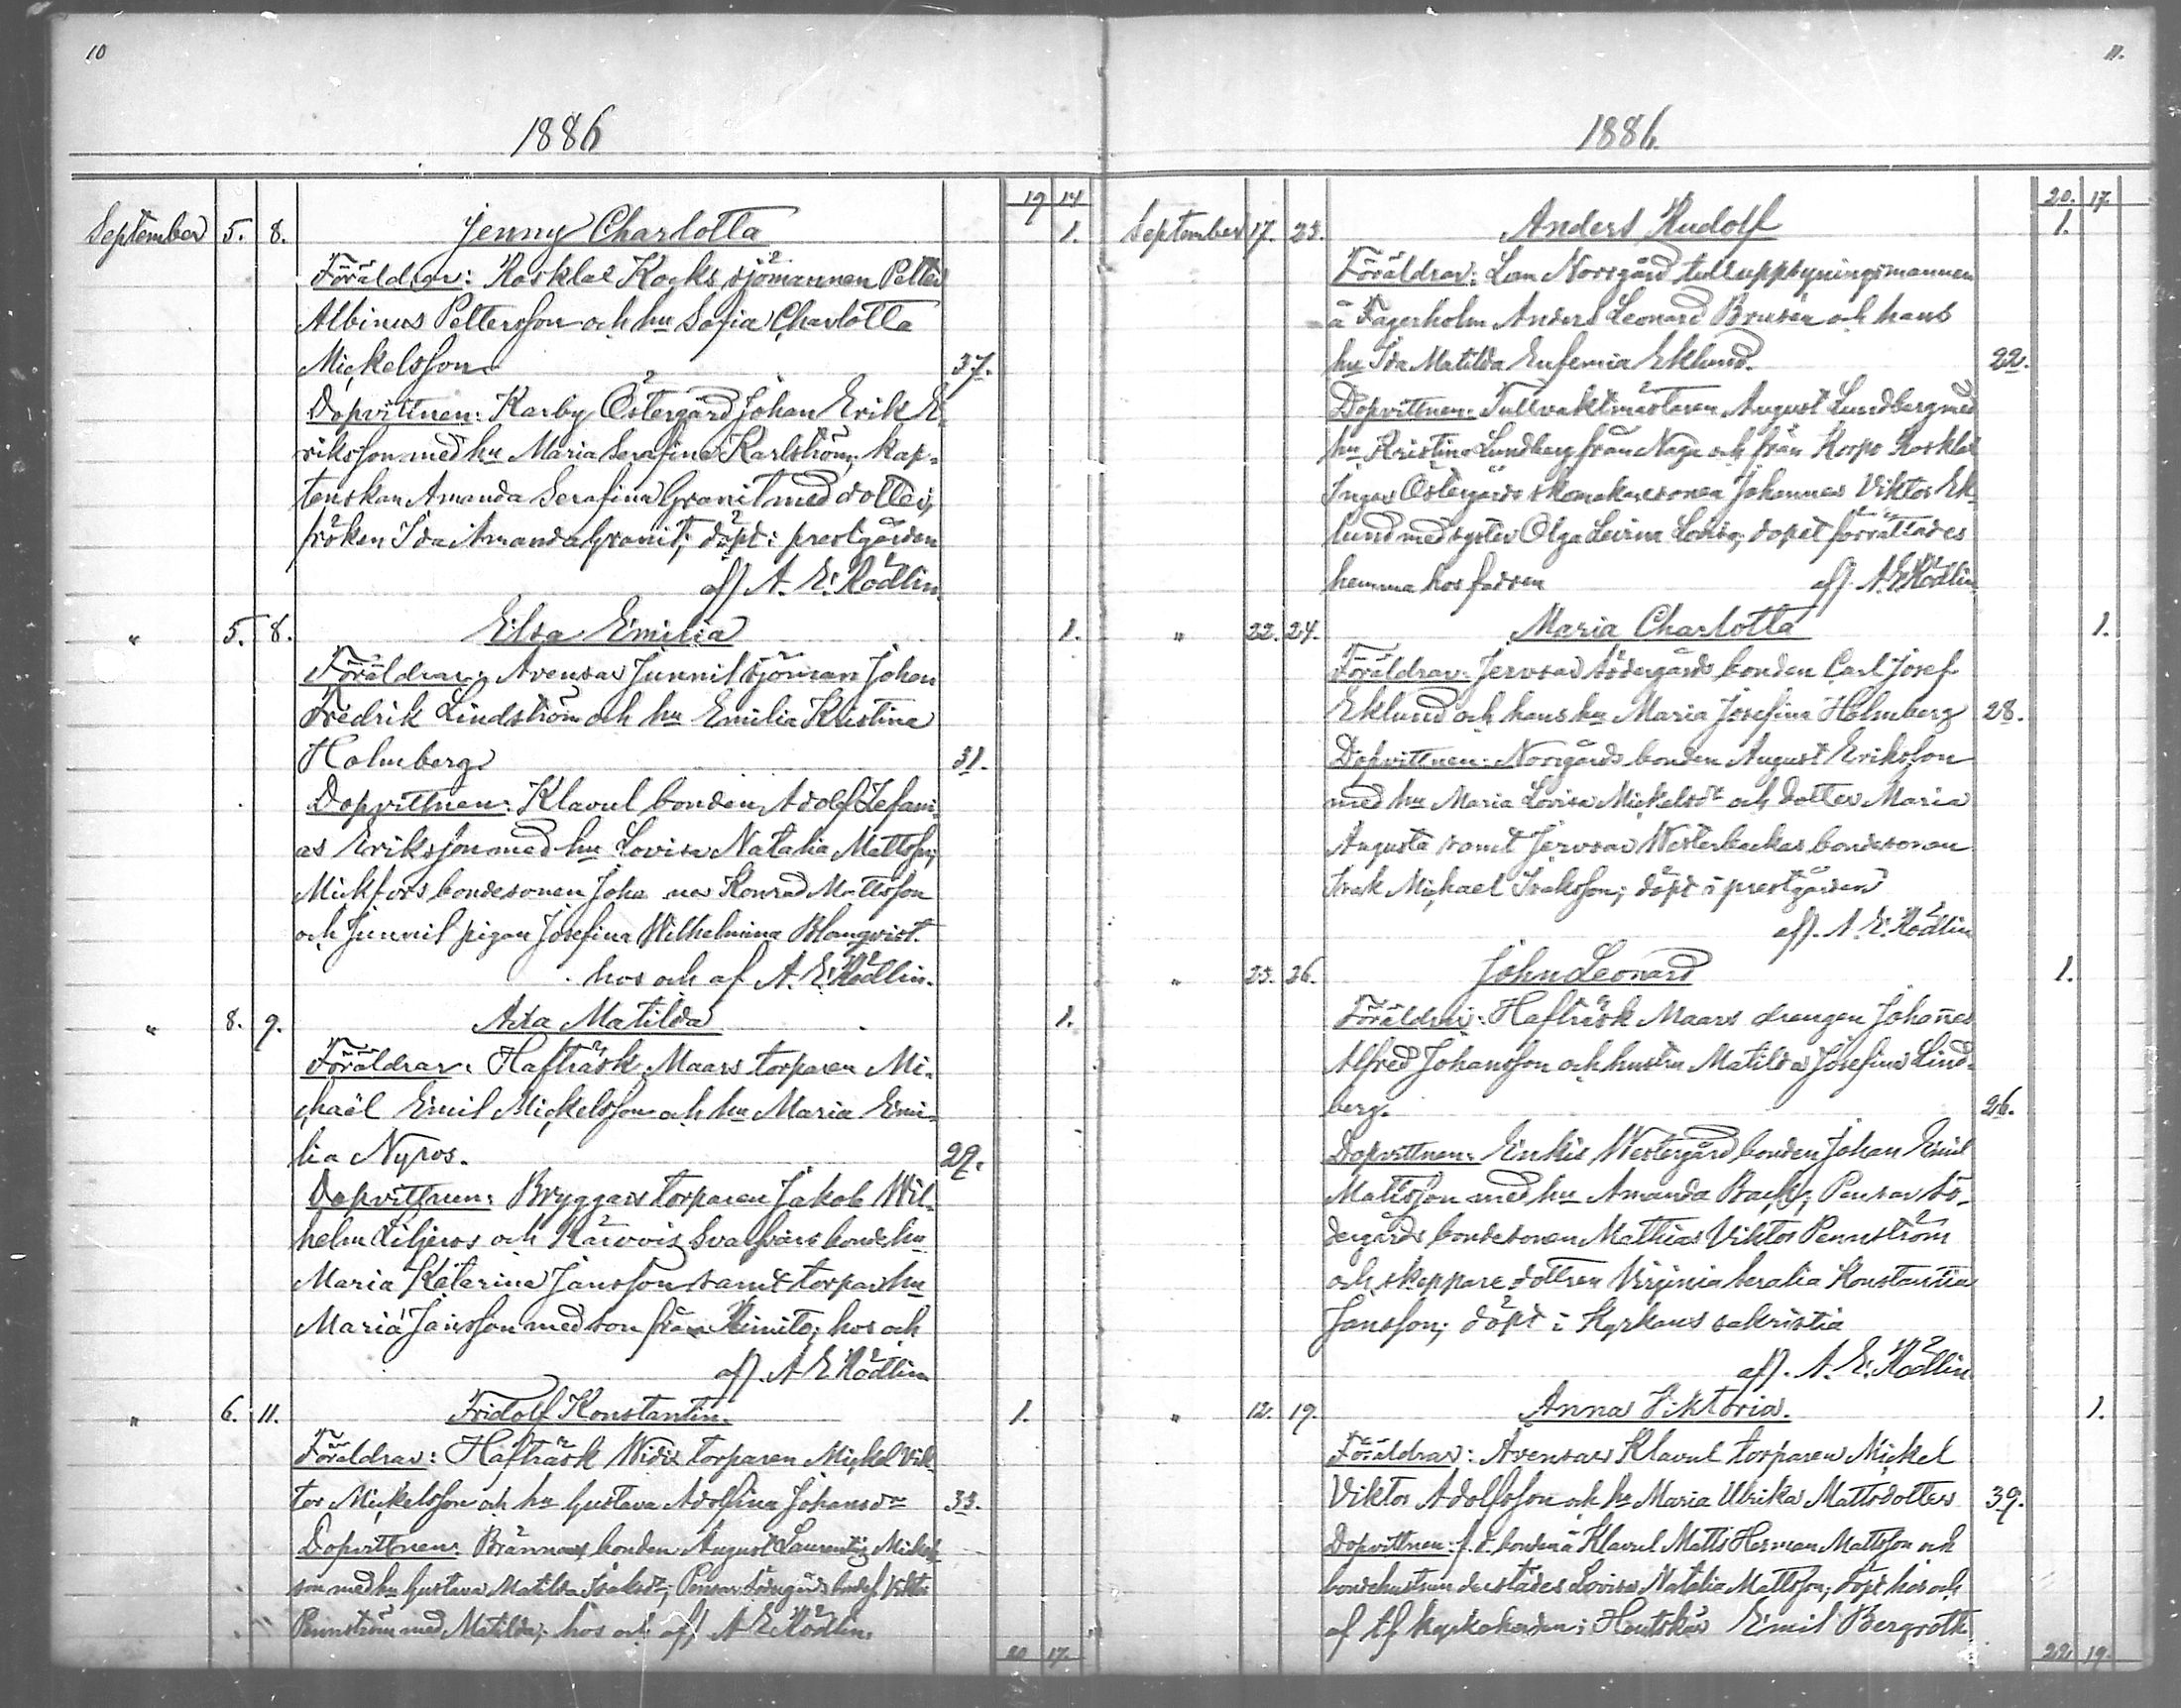 10
1886
19 14
September 5. 8. Jenny Charlotta 1.
Föräldrar: Rosklax Kocks sjömannen Petter
Albinus Pettersson och hu Sofia Charlotta
Mickelsson 37.
Dopvittnen: Karby Östergård Johan Erik E-
riksson med hu Maria Serafina Karlström, kap-
tenskan Amanda Serafina Granit med dotter,
fröken Ida Amanda Granit; döpt i prestgården
af A. E. Rödlin.
" 5. 8. Elsa Emilia 1.
Föräldrar: Avensar Junnil sjöman Johan
Fredrik Lindström och hu Emilia Kristina
Holmberg 31.
Dopvittnen: Klavul bonden Adolf Zefani-
as Eriksson med hu Lovisa Natalia Mattsson;
bondesonen Konrad Mattsson
och Junnil pigan Josefina Wilhelmina Blomqvist.
hos och af A. E. Rödlin.
" 8. 9. Matilda 1.
Föräldrar: Hafträsk Maars torparen Mi-
chaël Emil Mickelsson och hu Maria Emi-
lia Nyros. 29.
Dopvittnen: Bryggars torparen Jakob Wil-
helm Liljeros och bonde hu
Maria Katarina Jansson samt torpar hu
Maria Jansson med son från Kimito; hos och
af A E Rödlin
" 6. 11. Fridolf Konstantin. 1.
Föräldrar: Hafträsk Widix torparen Mickel Vik-
tor Mickelsson och hu Gustava Adolfina Johansdr 33.
Dopvittnen: bonden August Laurentius Mickels-
son med hu Gustava Matilda Isaksdr; Pensar Södergårds Viktor
Pennström med Matilda; hos och af A E Rödlin.
20 17.
11.
1886.
20. 17.
September 17. 23. Anders Rudolf 1.
Föräldrar: Lom Norrgård tulluppsyningsmannen
å Fagerholm Anders Leonard Brusén och hans
hu Ida Matilda Eufemia Eklund. 22.
Dopvittnen: Tullvaktmästaren August Lundberg med
hu Kristina Lundberg från Nagu och från Korpo Rosklax
Östergårds skomakaresonen Johannes Viktor Ek-
lund med syster Olga Lovisa; dopet förrättades
hemma hos af A. E Rödlin
" 22. 24. Maria Charlotta 1.
Föräldrar: Jervsar Södergårds bonden Carl Josef
Eklund och hans hu Maria Josefina Holmberg 28.
Dopvittnen: Norrgårds bonden August Eriksson
med hu Maria Lovisa Mickelsdr och dotter Maria
Augusta samt Jervsar Westerbackas bondesonen
Isak Michael Isaksson; döpt i prestgården
af A. E. Rödlin
" 23. 26. John Leonard 1.
Föräldrar: Hafträsk Maars drengen Johannes
Alfred Johansson och hustru Matilda Josefina Lind-
berg. 26.
Dopvittnen: Enkis Westergård bonden Johan Emil
Mattsson med hu Amanda Back; Pensar Sö-
dergårds bondesonen Mathias Viktor Pennström
och skeppare dottren Virginia Konstantia
Jansson; döpt i Kyrkans sakristia
af A. E. Rödlin
" 12. 19. Anna Viktoria. 1.
Föräldrar: Avensar Klavul torparen Mickel
Viktor Adolfsson och hu Maria Ulrika Mattsdotter 39.
Dopvittnen: f. d. bonden å Klavul Matts Herman Mattsson och
bondehustrun derstädes Lovisa Natalia Mattsson; döpt hos och
af tf kyrkoherden i Houtskär Emil Bergroth
22. 19.